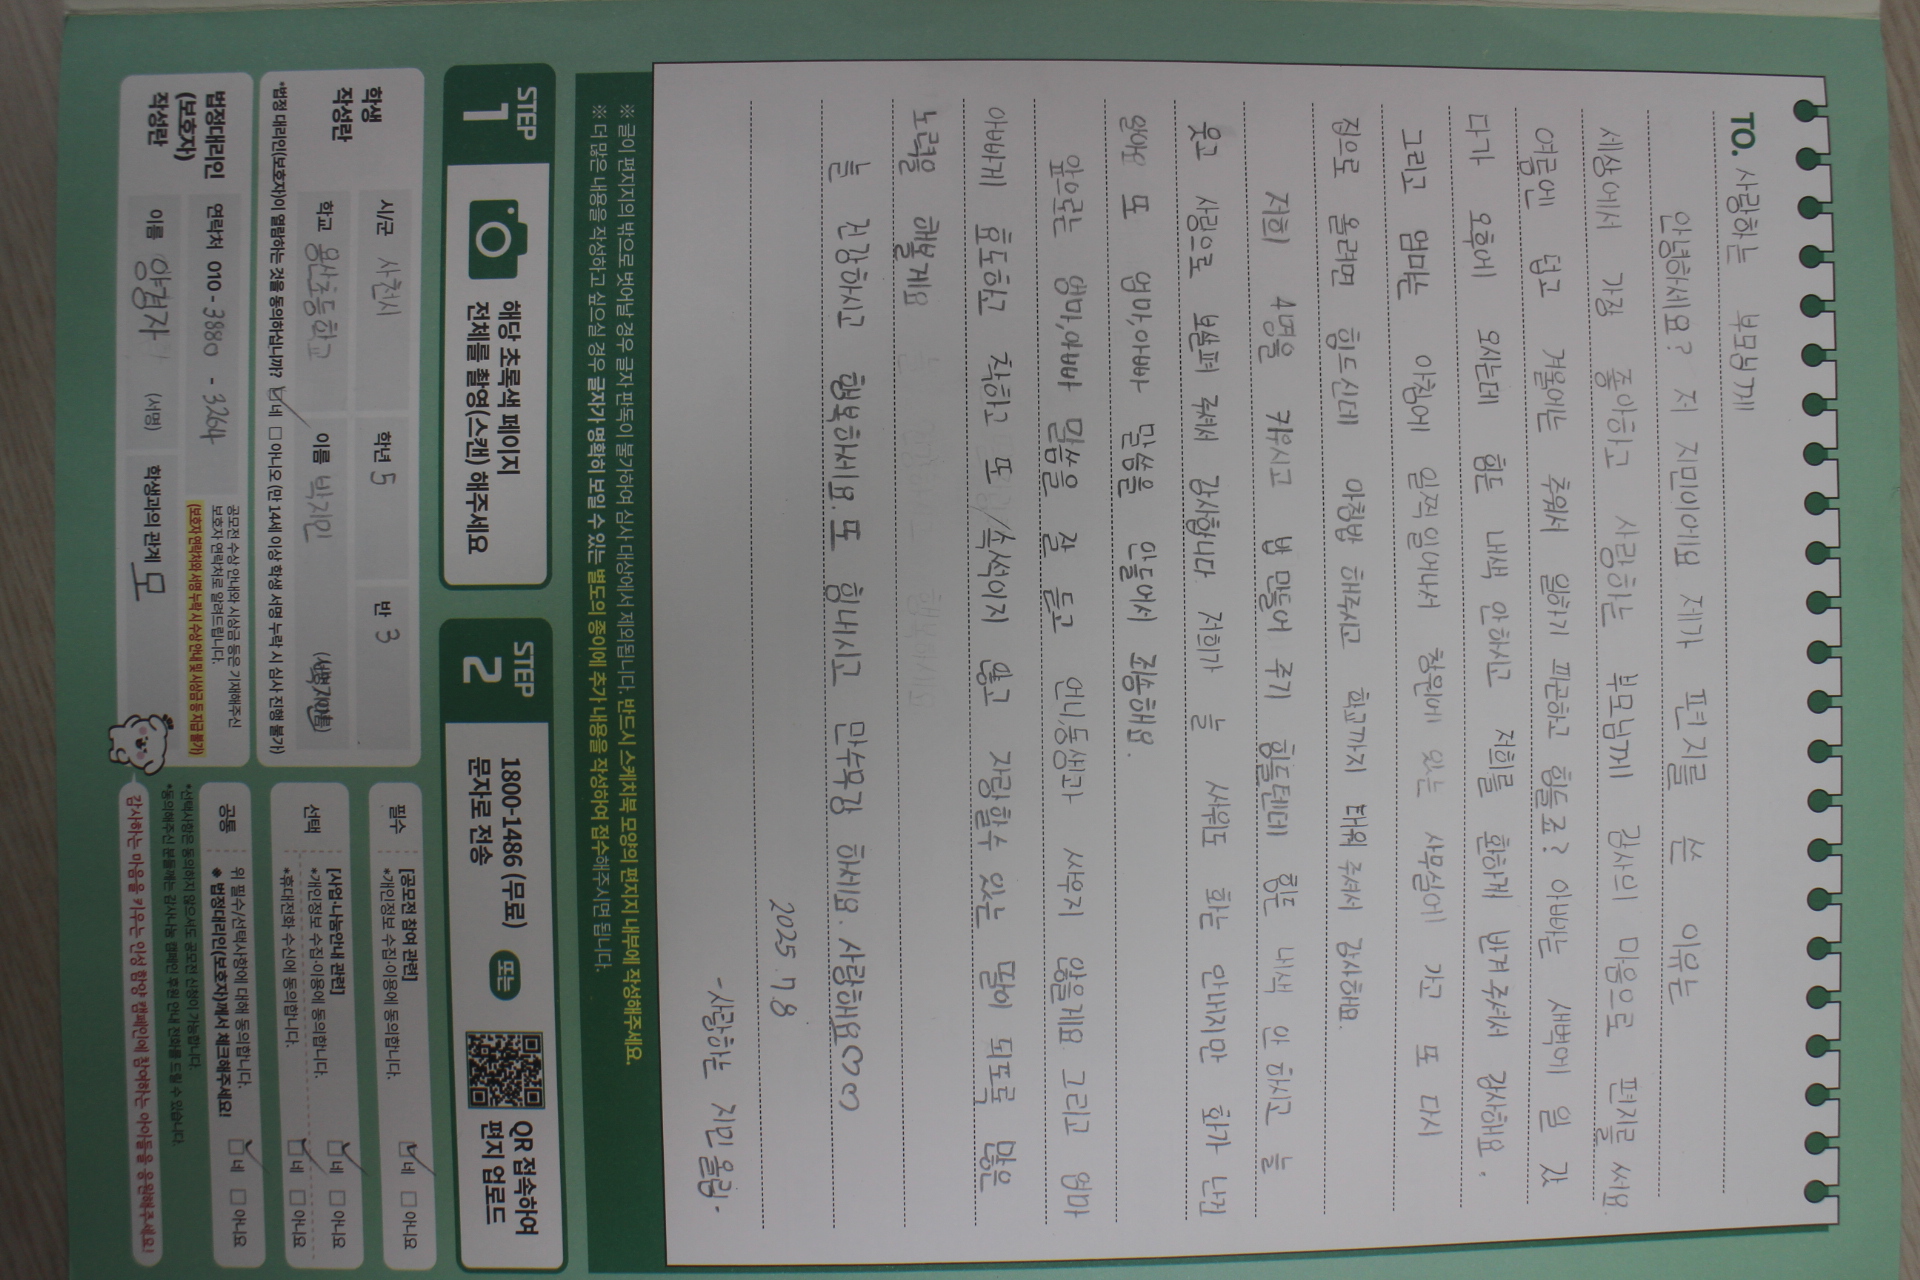 TO. 사랑하는 부모님께
안녕하세요? 저 지민이에요 제가 편지를 쓴 이유는
세상에서 가장 좋아하고 사랑하는 부모님께 감사의 마음으로 편지를 써요.
여름엔 덥고 겨울에는 추워서 일하기 피곤하고 힘들죠? 아빠는 새벽에 일 갔
다가 오후에 오시는데 힘든 내색 안하시고 저희를 환하게 반겨주셔서 감사해요.
그리고 엄마는 아침에 일찍 일어나서 창원에 있는 사무실에 가고 또 다시
집으로 올려면 힘드신데 아침밥 해주시고 학교까지 태워 주셔서 감사해요
저희 4명을 키우시고 밥 만들어 주기 힘들텐데 힘든 내색 안 하시고 늘
웃고 사랑으로 보살펴 주셔서 감사합니다. 저희가 늘 싸워도 화는 안내지만 화가 난전
있어요 또 엄마,아빠 말씀을 안들어서 죄송해요.
앞으로는 엄마,아빠 말씀을 잘 듣고 언니,동생과 싸우지 않을게요. 그리고 엄마
아빠께 효도하고 착하고 또 속썩이지 않고 자랑할수 있는 딸이 되도록 많은
노력을 해볼게요
늘 건강하시고 행복하세요. 또 힘내시고 만수무강 하세요. 사랑해요♡♡♡
2025. 7. 8
-사랑하는 지민 올림-
※ 글이 편지지의 밖으로 벗어날 경우 글자 판독이 불가하여 심사 대상에서 제외됩니다. 반드시 스케치북 모양의 편지지 내부에 작성해주세요.
※ 더 많은 내용을 작성하고 싶으실 경우 글자가 명확히 보일 수 있는 별도의 종이에 추가 내용을 작성하여 접수해주시면 됩니다.
STEP 1
해당 초록색 페이지
전체를 촬영(스캔) 해주세요
STEP 2
1800-1486 (무료)
문자로 전송
또는
QR 접속하여
편지 업로드
학생
작성란
시/군 사천시
학년 5
반 3
학교 용산초등학교
이름 박지민
*법정 대리인(보호자)이 열람하는 것을 동의하십니까? ☑네 ☐아니오 (만 14세 이상 학생 서명 누락 시 심사 진행 불가)
법정대리인
(보호자)
작성란
연락처 010 - 3880 - 3264
공모전 수상 안내와 시상금 등은 기재해주신
보호자 연락처로 알려드립니다.
(보호자 연락처와 서명 누락 시 수상 안내 및 시상금 등 지급 불가)
이름 양경자 (서명)
학생과의 관계 모
필수
[공모전 참여 관련]
*개인정보 수집·이용에 동의합니다. ☑네 ☐아니요
선택
[사업·나눔안내 관련]
*개인정보 수집·이용에 동의합니다. ☑네 ☐아니요
*휴대전화 수신에 동의합니다. ☑네 ☐아니요
공통
위 필수/선택사항에 대해 동의합니다.
◆ 법정대리인(보호자)께서 체크해주세요! ☑네 ☐아니요
*선택사항은 동의하지 않으셔도 공모전 신청이 가능합니다.
*동의해주신 분들께는 감사나눔 캠페인 후원 안내 전화를 드릴 수 있습니다.
감사하는 마음을 키우는 인성 함양 캠페인에 참여하는 아이들을 응원해주세요!